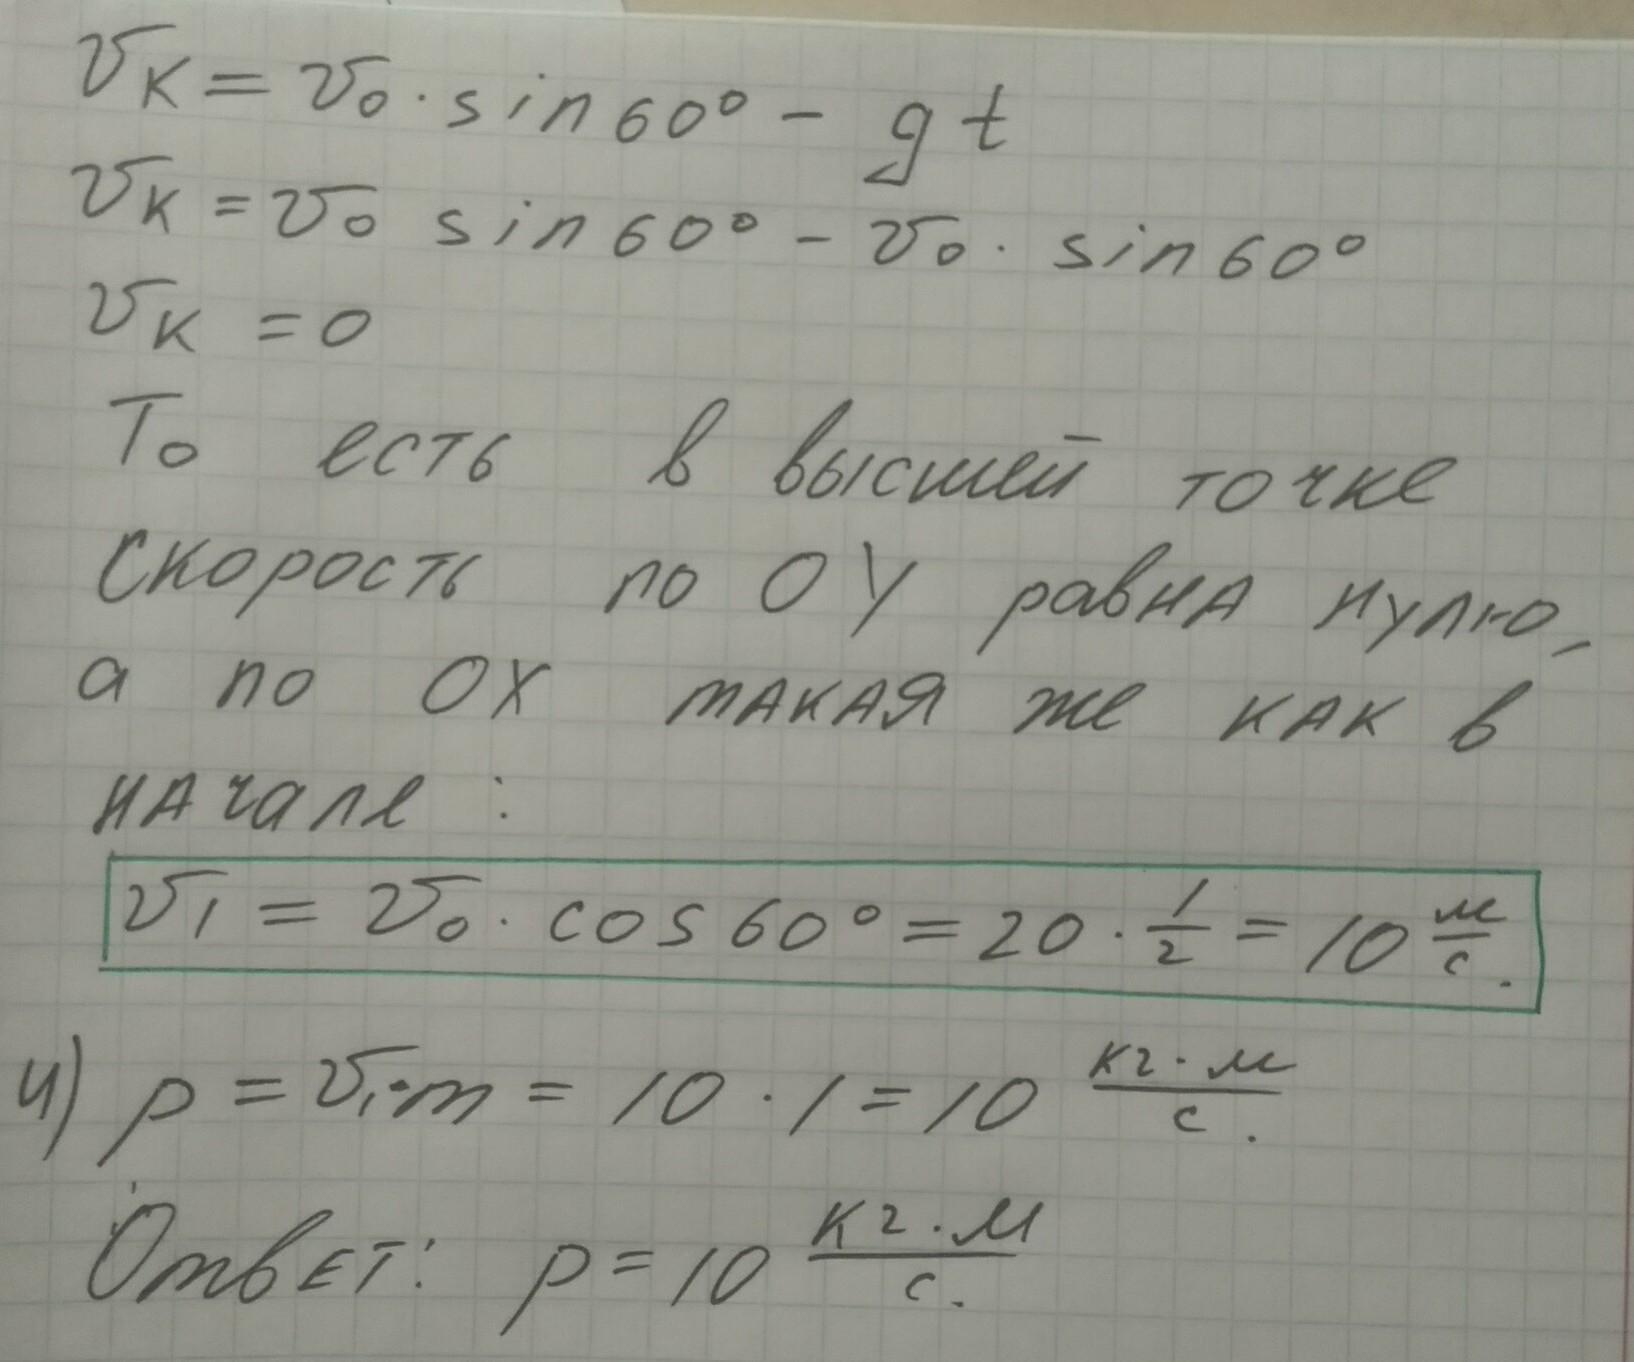 υк = υ₀ · sin 60° - gt
υк = υ₀ sin 60° - υ₀ · sin 60°
υк = 0
То есть в высшей точке
скорость по ОУ равна нулю,
а по ОХ такая же как в
начале :
υ₁ = υ₀ · cos 60° = 20 · 1/2 = 10 м/с.
4) p = υ₁·m = 10 · 1 = 10 кг·м/с.
Ответ: p = 10 кг·м/с.